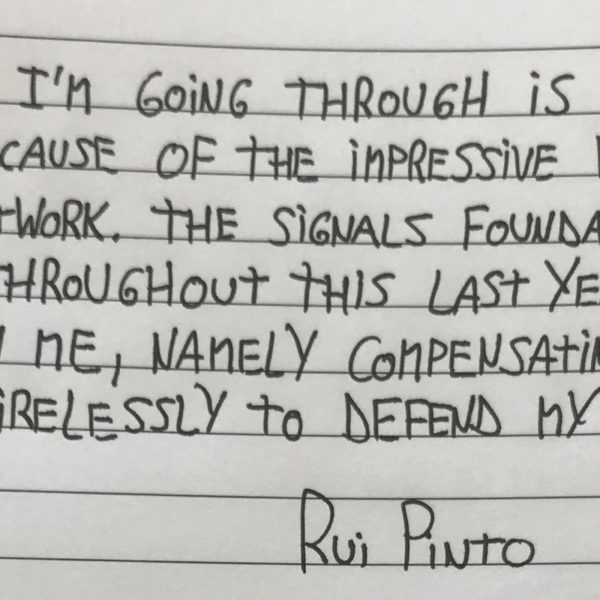 I'M GOING THROUGH IS
CAUSE OF THE IMPRESSIVE
TWORK. THE SIGNALS FOUNDA
THROUGHOUT THIS LAST YE
ME, NAMELY COMPENSATIN
IRELESSLY TO DEFEND MY
RUI PINTO